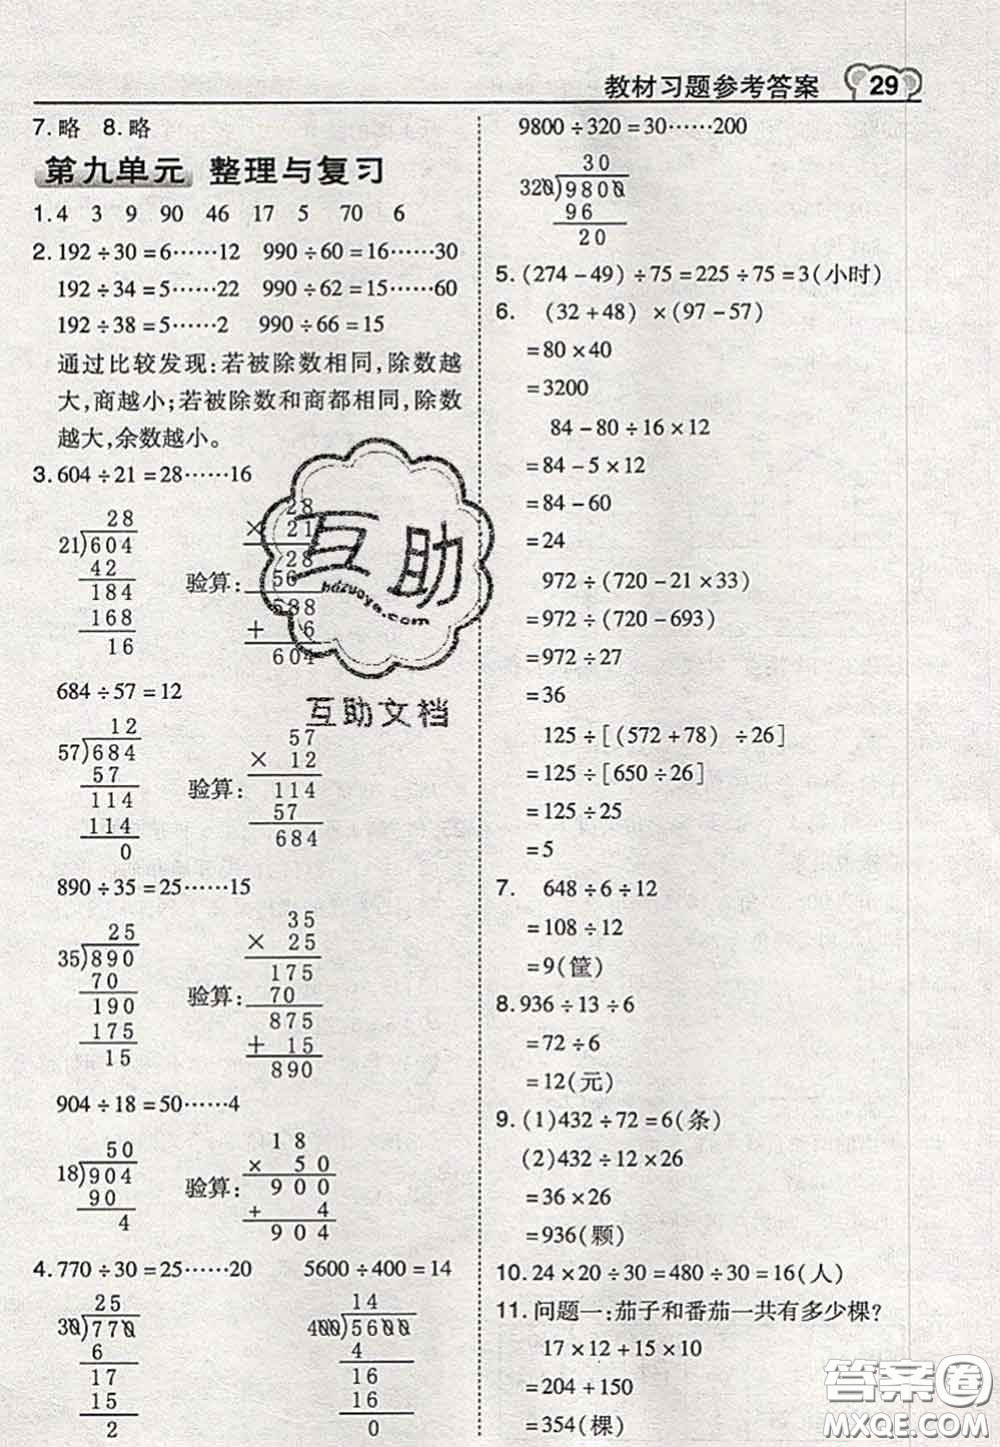 教材习题参考答案 29
7.略 8.略
第九单元 整理与复习
1.4 3 9 90 46 17 5 70 6
2.192÷30=6……12 990÷60=16……30
192÷34=5……22 930÷62=15……60
192÷38=5……2 990÷66=15
通过比较发现:若被除数相同,除数越
大,商越小;若被除数和商都相同,除数
越大,余数越小。
3.604÷21=28……16
28
21)604
42
184
168
16
验算:
28
× 21
28
56
588
+ 6
604
684÷57=12
12
57)684
57
114
114
0
验算:
57
× 12
114
57
684
890÷35=25……15
25
35)890
70
190
175
15
验算:
35
× 25
175
70
875
+ 15
890
904÷18=50……4
50
18)904
90
4
验算:
18
× 50
900
+ 4
904
4.770÷30=25……20 5600÷400=14
25
30)770
6
17
15
2
14
400)5600
4
16
16
0
9800÷320=30……200
30
320)9800
96
20
5.(274-49)÷75=225÷75=3(小时)
6. (32+48)×(97-57)
=80×40
=3200
84-80÷16×12
=84-5×12
=84-60
=24
972÷(720-21×33)
=972÷(720-693)
=972÷27
=36
125÷[(572+78)÷26]
=125÷[650÷26]
=125÷25
=5
7. 648÷6÷12
=108÷12
=9(筐)
8.936÷13÷6
=72÷6
=12(元)
9.(1)432÷72=6(条)
(2)432÷12×26
=36×26
=936(颗)
10.24×20÷30=480÷30=16(人)
11.问题一:茄子和番茄一共有多少棵?
17×12+15×10
=204+150
=354(棵)
互助
hdzuoye.com
互助文档
答案圈
MXQE.COM